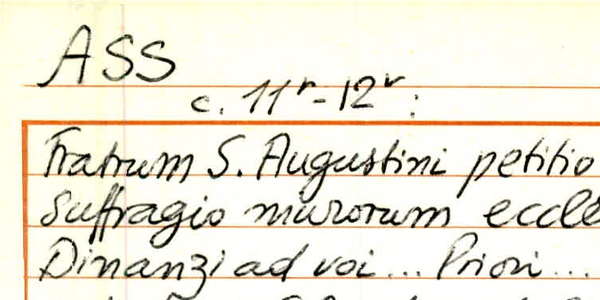 ASS
c. 11r-12v:
Fratrum S. Augustini petitio
Suffragio murorum eccle
Dinanzi ad voi... Priori...